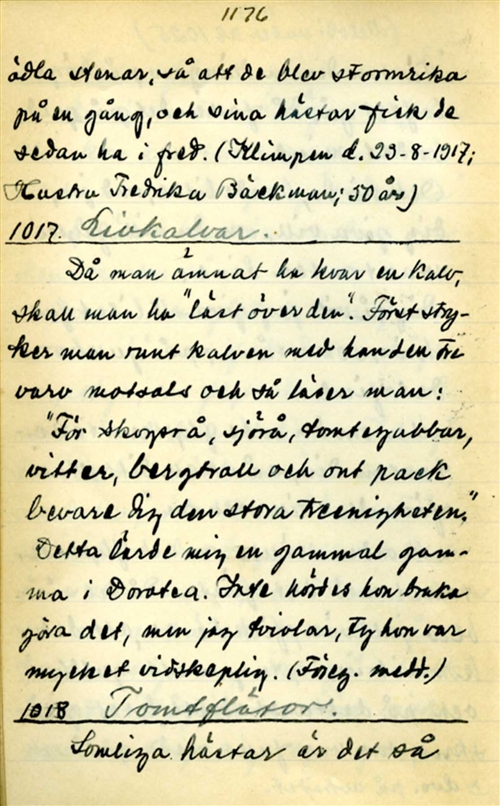 1176
ädla stenar, så att de blev stormrika
på en gång, och sina hästar fick de
sedan ha i fred. (Klimpen d. 23-8-1917;
Hustru Fredrika Bäckman; 50 år)
1017. Livkalvar.
Då man ämnat ha kvar en kalv,
skall man ha "läst över den". Först stry-
ker man runt kalven med handen tre
varv motsols och så läser man:
"För skogsrå, sjörå, tomtegubbar,
vitter, bergtroll och ont pack
bevare dig den stora treenigheten."
Detta lärde mig en gammal gum-
ma i Dorotea. Inte hördes hon bruka
göra det, men jag tvivlar, ty hon var
mycket vidskeplig. (Föreg. medd.)
1018 Tomtflätor.
Somliga hästar är det så